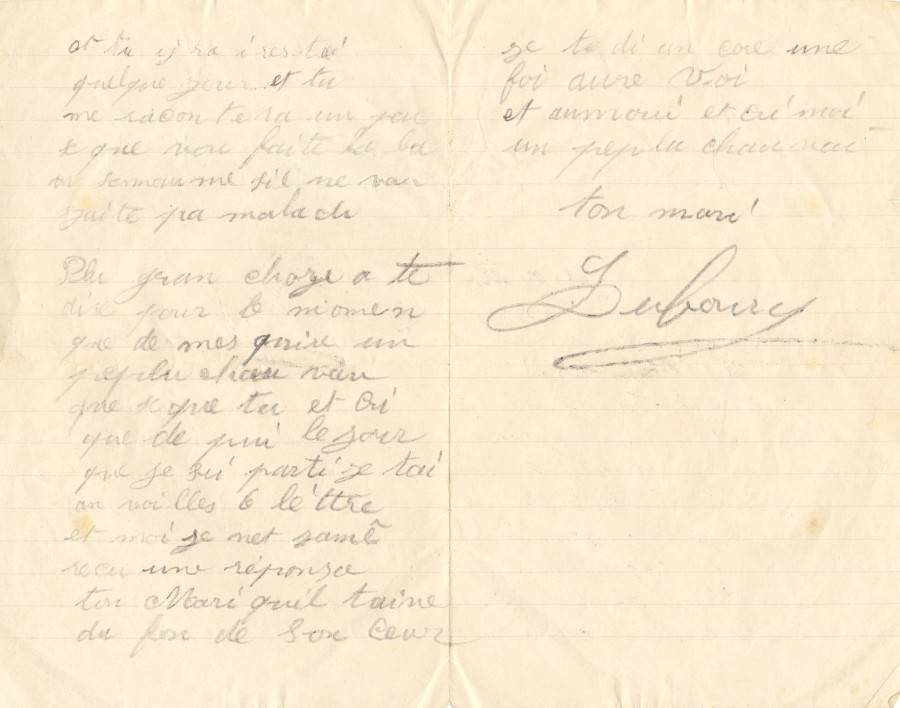 et tu y ra i res toi
quelque jour et tu
me racon te ra un peu
se que vou faite la ba
an semeu me sil ne vou
faite pa malade
Plu gran choze a te
dire pour le momen
que de mes quire un
peplu chau vau
que se que tu et cri
que de pui le jour
que je sui parti je tai
an voilles 6 lèttre
et moi je net jamê
recu une réponse
ton Mari quil taine
du fon de son Ceur
je te di an core une
foi aure Voi
et aumoui et cri moi
un pep lu chau vai
ton mari
Dubourg